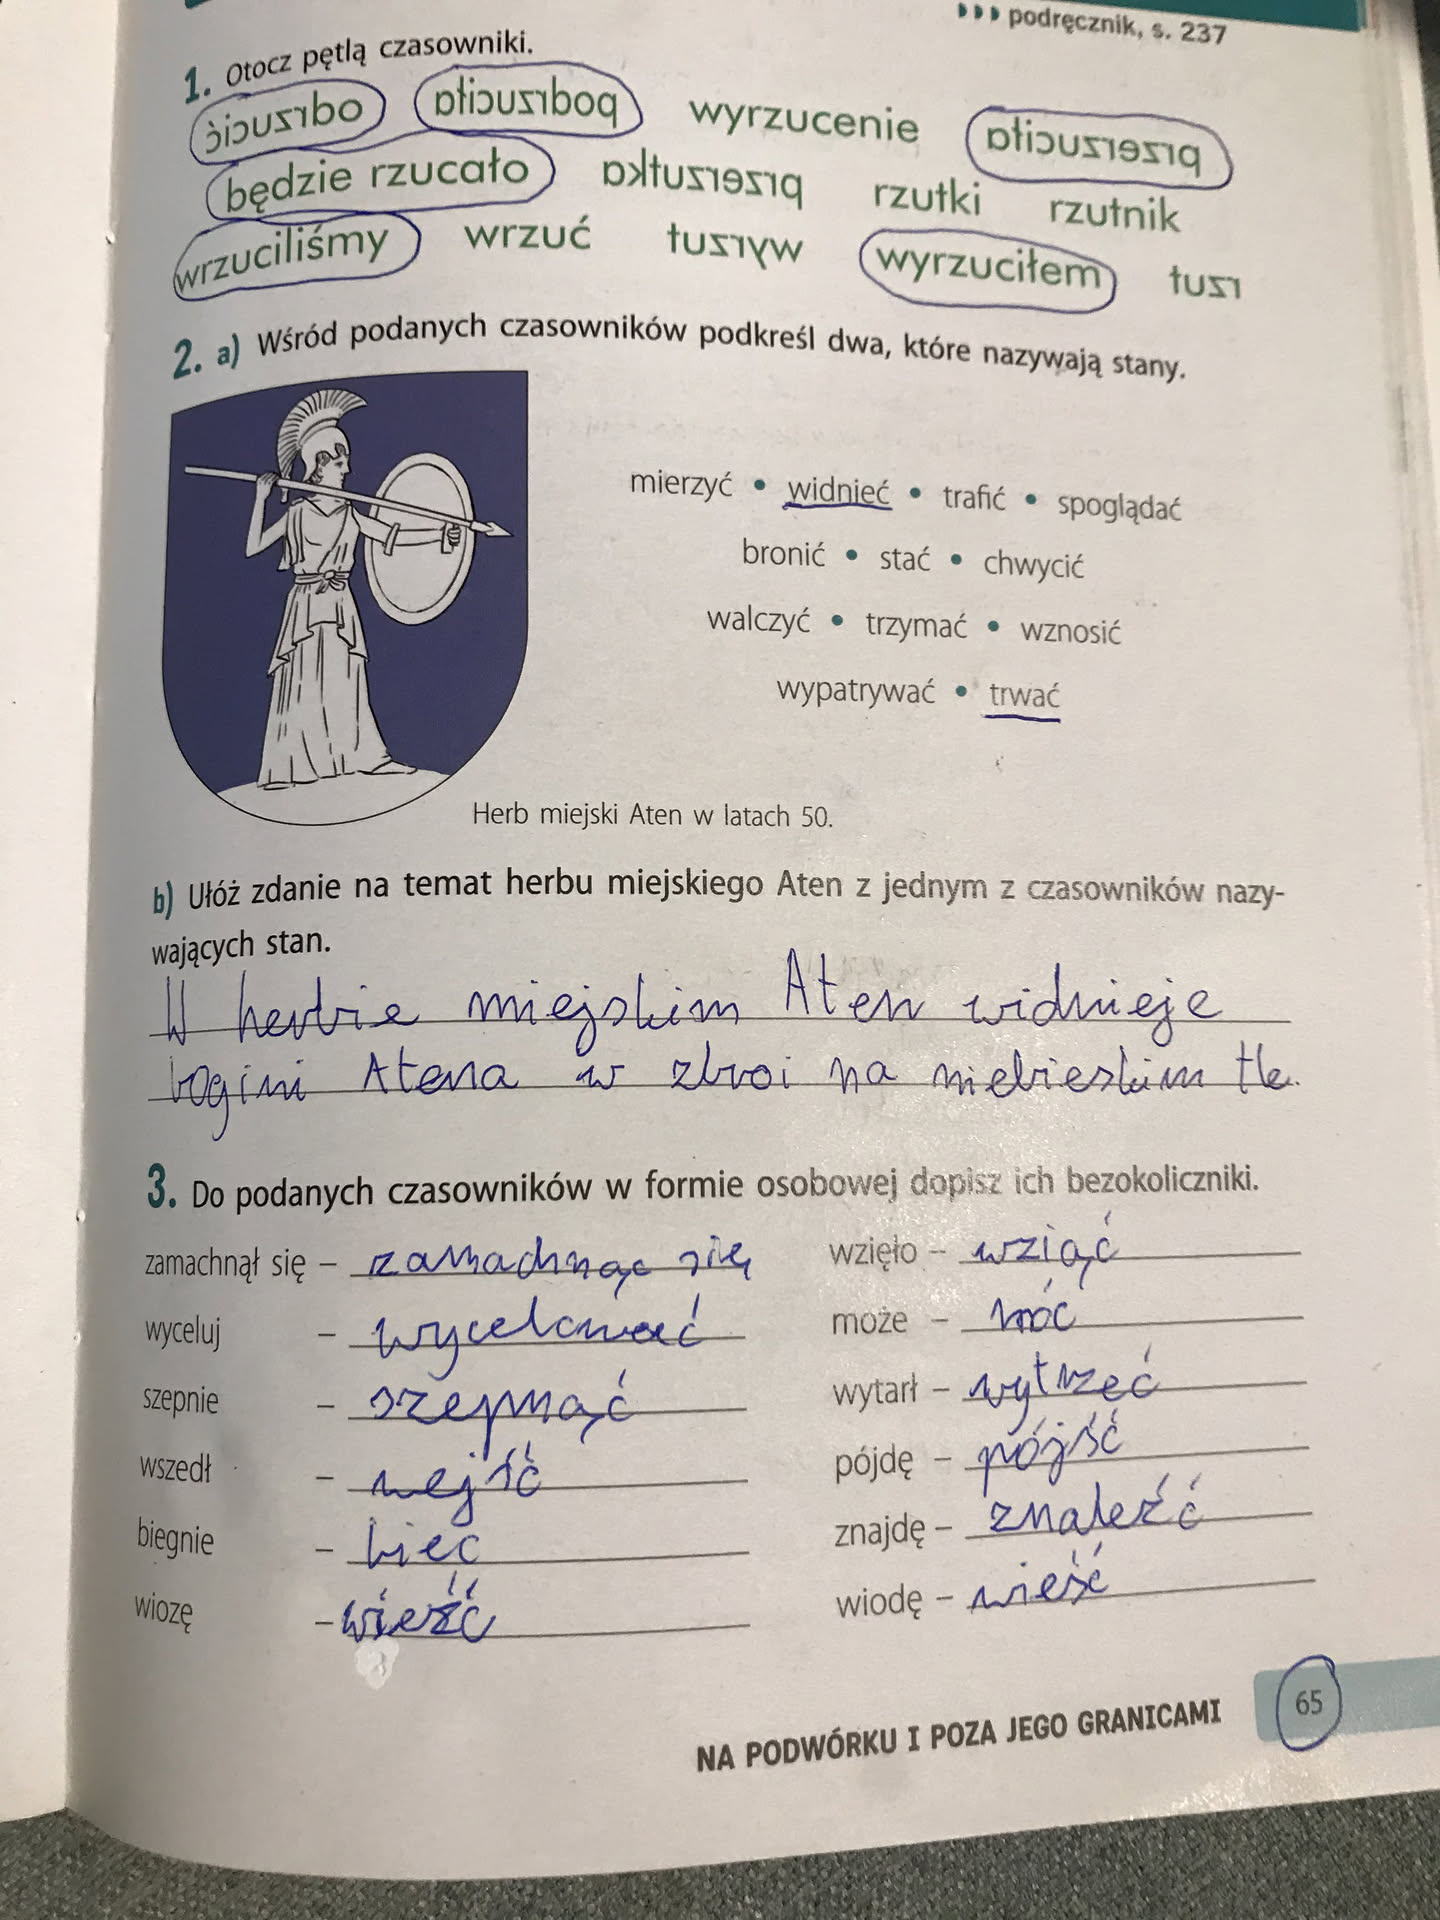 podręcznik, s. 237
1. Otocz pętlą czasowniki.
odrzucić podrzuciła wyrzucenie przerzuciła
będzie rzucało przerzutka rzutki rzutnik
wrzuciliśmy wrzuć wyrzut wyrzuciłem rzut
2. a) Wśród podanych czasowników podkreśl dwa, które nazywają stany.
mierzyć • widnieć • trafić • spoglądać
bronić • stać • chwycić
walczyć • trzymać • wznosić
wypatrywać • trwać
Herb miejski Aten w latach 50.
b) Ułóż zdanie na temat herbu miejskiego Aten z jednym z czasowników nazy-
wających stan.
W herbie miejskim Aten widnieje
bogini Atena w zbroi na niebieskim tle.
3. Do podanych czasowników w formie osobowej dopisz ich bezokoliczniki.
zamachnął się – zamachnąc się
wyceluj – wycelować
szepnie – szepnąć
wszedł – wejść
biegnie – biec
wiozę – wieźć
wzięło – wziąć
może – móc
wytarł – wytrzeć
pójdę – pójść
znajdę – znaleźć
wiodę – wieść
NA PODWÓRKU I POZA JEGO GRANICAMI
65